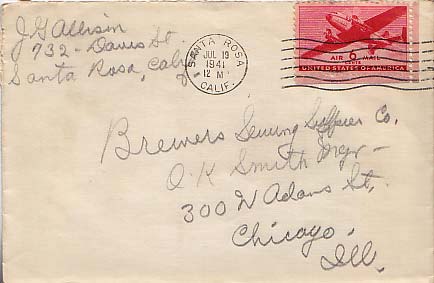 J G Allison
732 - Davis St.
Santa Rosa, Calif
SANTA ROSA
JUL 19
1941
12 M
CALIF.
AIR 6 MAIL
CENTS
UNITED STATES OF AMERICA
Brewers Sewing Supplies Co.
O. K Smith Mgr -
300 W Adams St.
Chicago.
Ill.